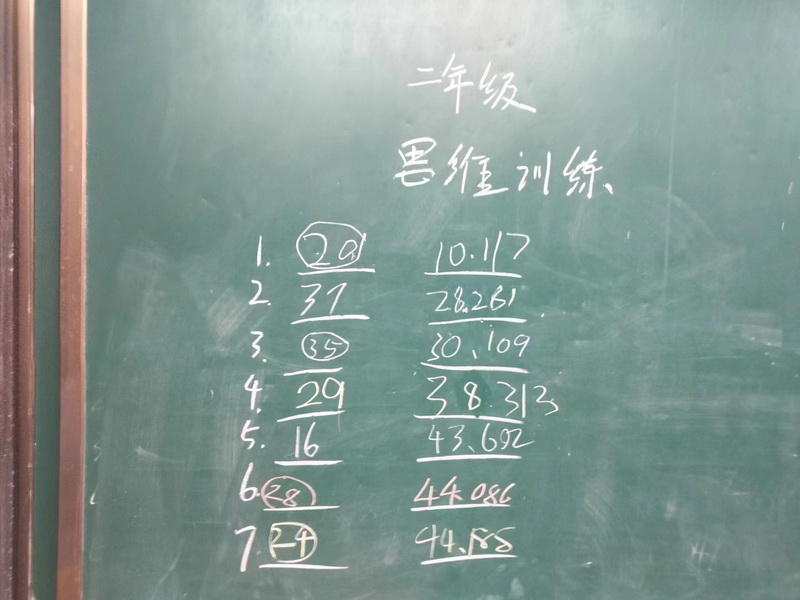 二年级
思维训练
1. 20 10.117
2. 37 28.261
3. 35 30.109
4. 29 38.313
5. 16 43.692
6. 28 44.086
7. 24 44.155